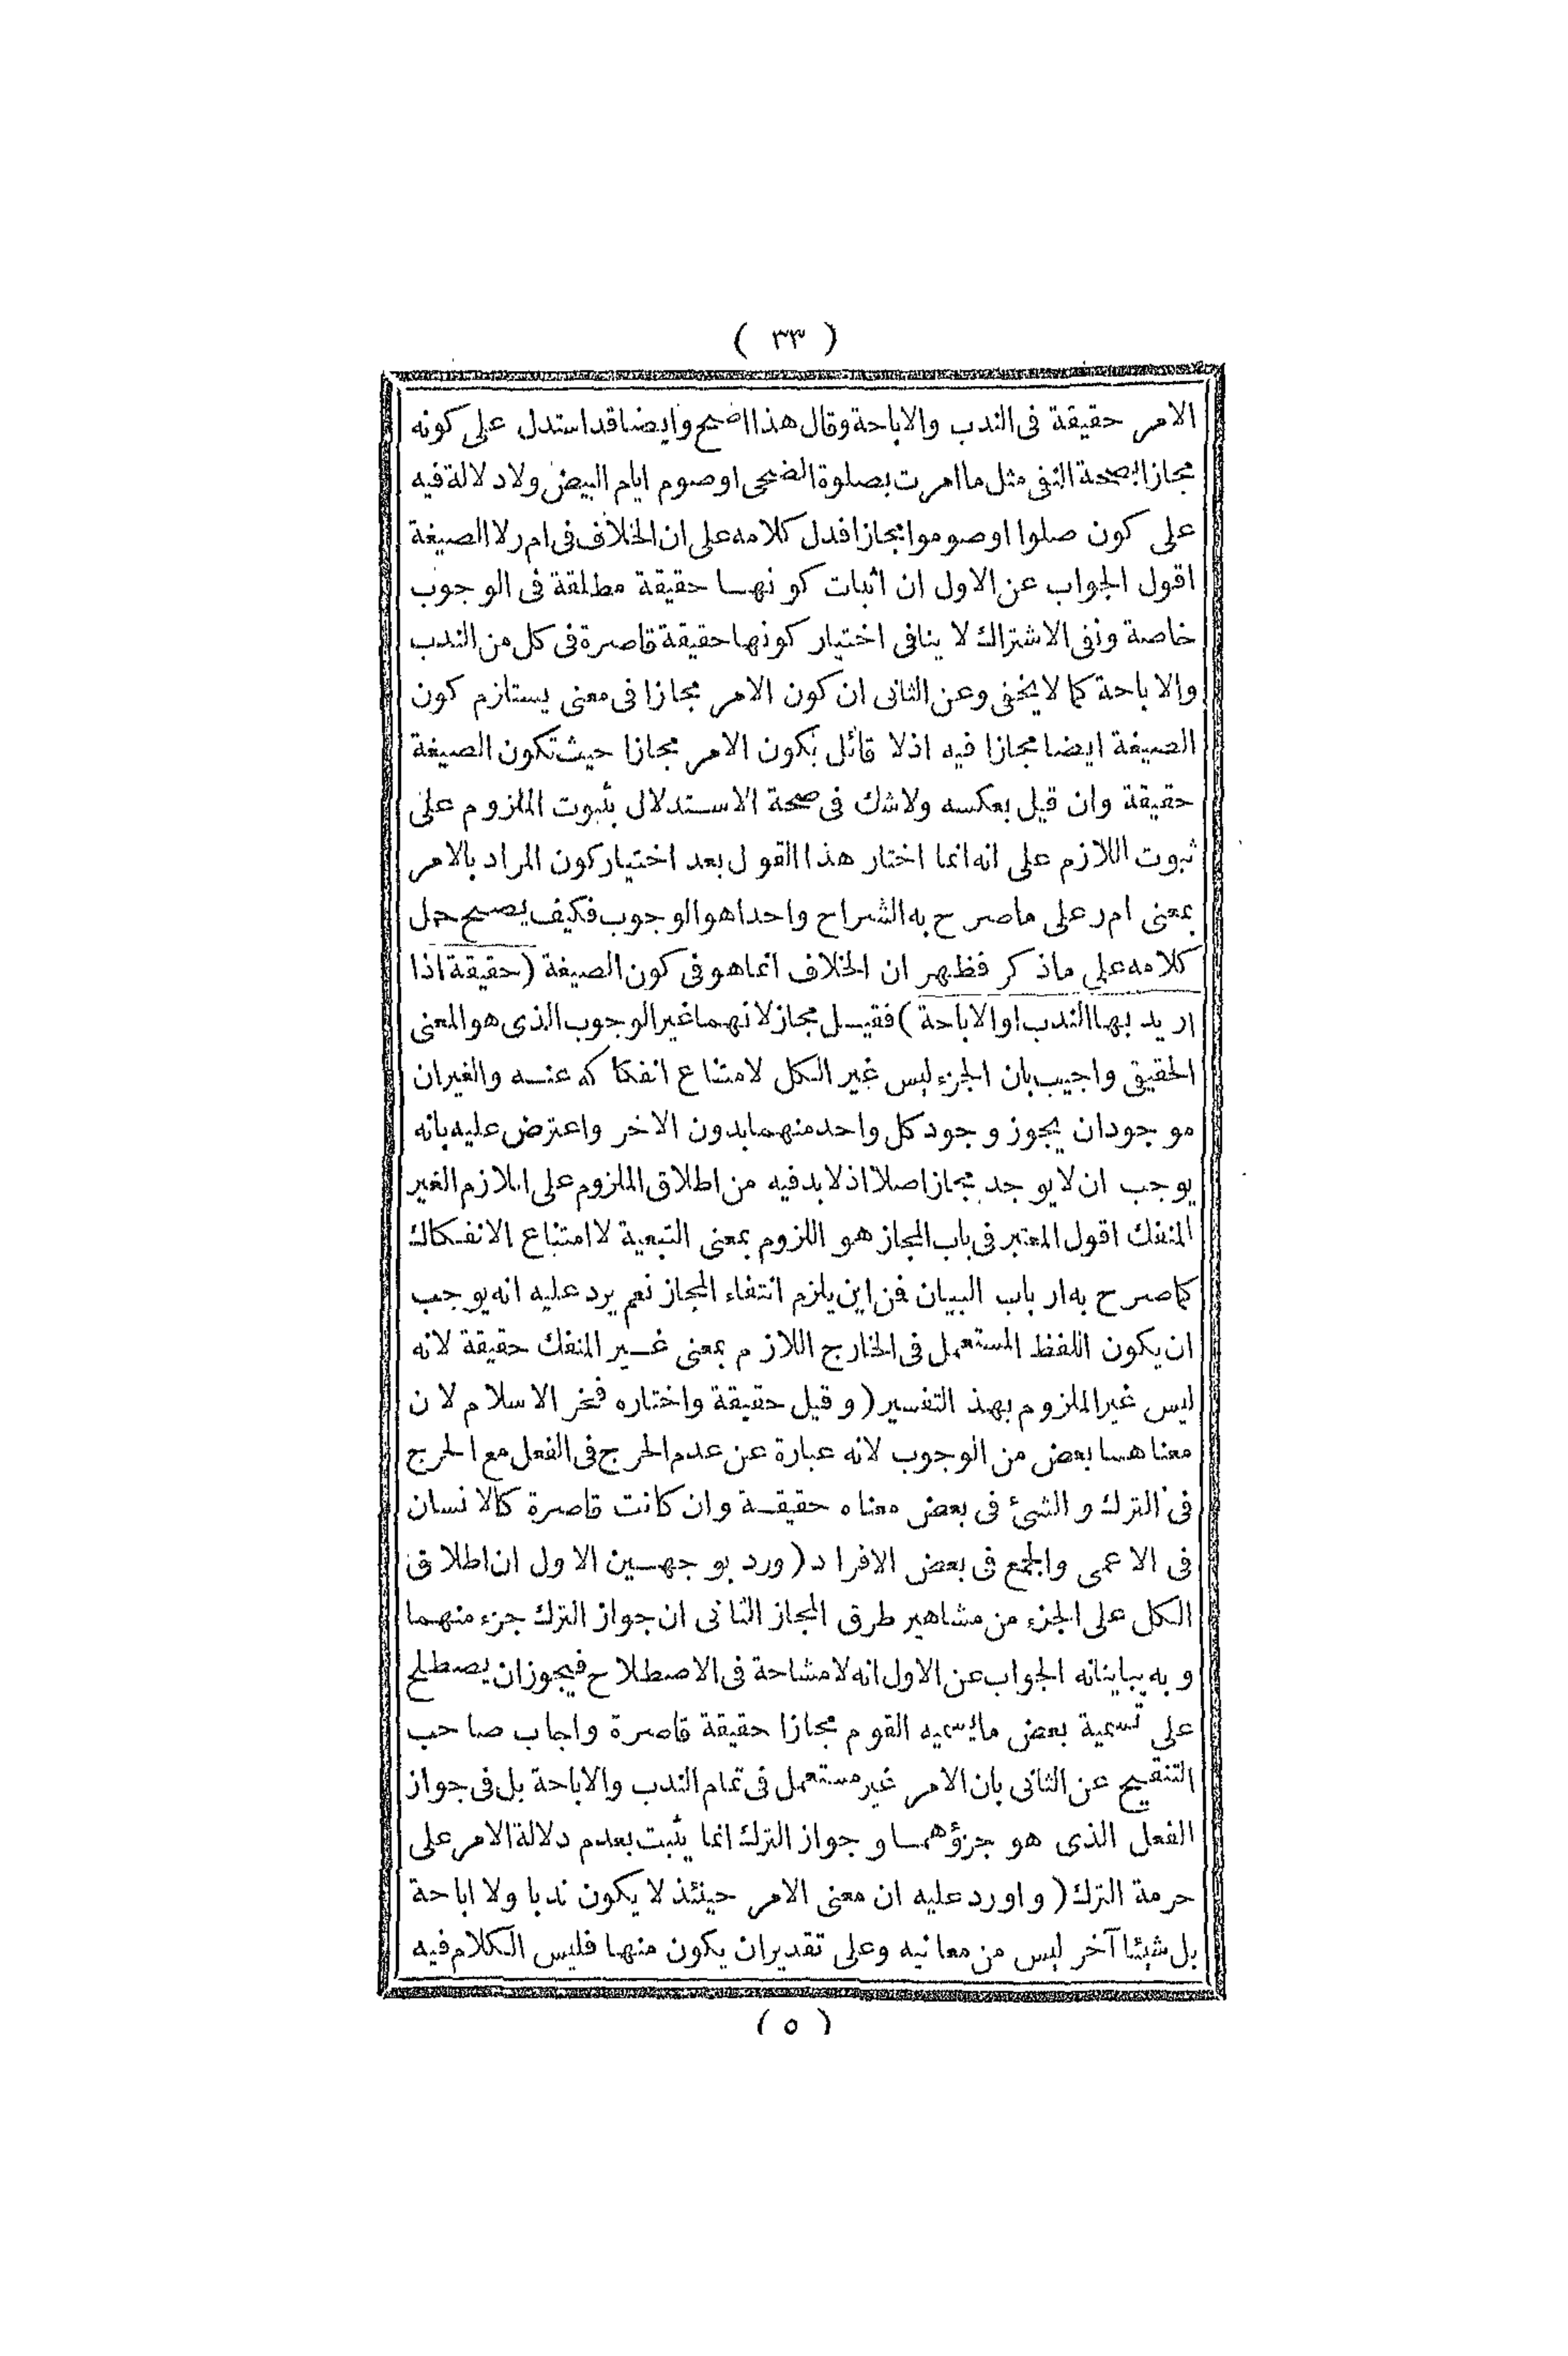 ( ٣٣ )
الامر حقيقة فى الندب والاباحة وقال هذا اصح وايضا قد استدل على كونه
مجازا بصحة النفى مثل ما امرت بصلوة الضحى او صوم ايام البيض ولا دلالة فيه
على كون صلوا او صوموا مجازا فدل كلامه على ان الخلاف فى ام ر لا الصيغة
اقول الجواب عن الاول ان اثبات كونها حقيقة مطلقة فى الوجوب
خاصة ونفى الاشتراك لا ينافى اختيار كونها حقيقة قاصرة فى كل من الندب
والاباحة كما لا يخفى وعن الثانى ان كون الامر مجازا فى معنى يستلزم كون
الصيغة ايضا مجازا فيه اذ لا قائل بكون الامر مجازا حيث تكون الصيغة
حقيقة وان قيل بعكسه ولا شك فى صحة الاستدلال بثبوت الملزوم على
ثبوت اللازم على انه انما اختار هذا القول بعد اختيار كون المراد بالامر
بمعنى ام ر على ما صرح به الشراح واحدا هو الوجوب فكيف يصح حمل
كلامه على ما ذكر فظهر ان الخلاف انما هو فى كون الصيغة (حقيقة اذا
اريد بها الندب او الاباحة) فقيل مجاز لانهما غير الوجوب الذى هو المعنى
الحقيق واجيب بان الجزء ليس غير الكل لامتناع انفكاكه عنه والغيران
موجودان يجوز وجود كل واحد منهما بدون الاخر واعترض عليه بانه
يوجب ان لا يوجد مجاز اصلا اذ لا بد فيه من اطلاق الملزوم على اللازم الغير
المنفك اقول المعتبر فى باب المجاز هو اللزوم بمعنى التبعية لا امتناع الانفكاك
كما صرح به ارباب البيان فمن اين يلزم انتفاء المجاز نعم يرد عليه انه يوجب
ان يكون اللفظ المستعمل فى الخارج اللازم بمعنى غير المنفك حقيقة لانه
ليس غير الملزوم بهذ التفسير (وقيل حقيقة واختاره فخر الاسلام لان
معناهما بعض من الوجوب لانه عبارة عن عدم الحرج فى الفعل مع الحرج
فى الترك والشئ فى بعض معناه حقيقة وان كانت قاصرة كالانسان
فى الاعمى والجمع فى بعض الافراد (ورد بوجهين الاول ان اطلاق
الكل على الجزء من مشاهير طرق المجاز الثانى ان جواز الترك جزء منهما
وبه يباينانه الجواب عن الاول انه لا مشاحة فى الاصطلاح فيجوز ان يصطلح
على تسمية بعض ما يسميه القوم مجازا حقيقة قاصرة واجاب صاحب
التنقيح عن الثانى بان الامر غير مستعمل فى تمام الندب والاباحة بل فى جواز
الفعل الذى هو جزؤهما وجواز الترك انما يثبت بعدم دلالة الامر على
حرمة الترك (واورد عليه ان معنى الامر حينئذ لا يكون ندبا ولا اباحة
بل شيئا آخر ليس من معانيه وعلى تقدير ان يكون منها فليس الكلام فيه
( ٥ )